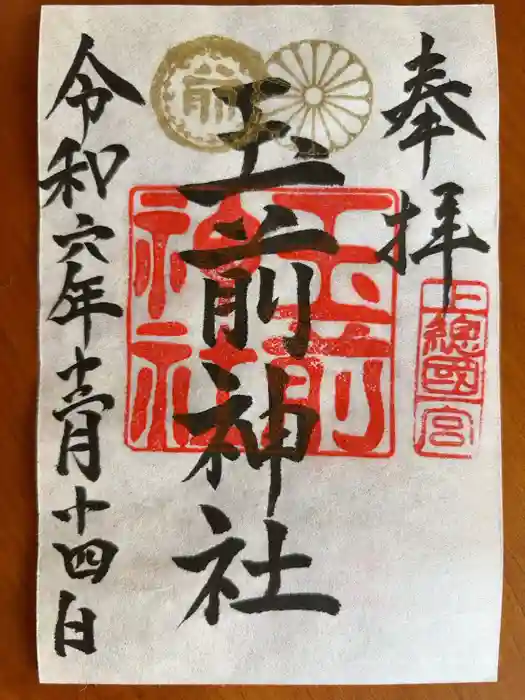 奉拝
上總國一宮
玉前神社
玉前神社
前
令和六年十二月十四日